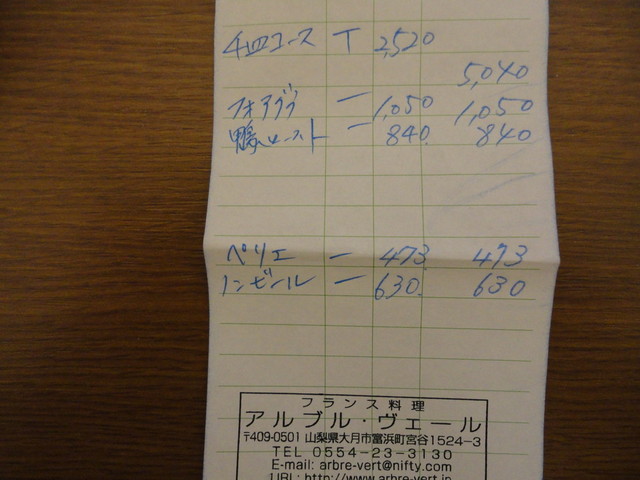 4皿コース T 2,520
5,040
フォアグラ 一 1,050 1,050
鴨ロースト 一 840. 840
ペリエ 一 473. 473
ノンビール 一 630. 630
フランス料理
アルブル・ヴェール
〒409-0501 山梨県大月市富浜町宮谷1524-3
TEL 0554-23-3130
E-mail: arbre-vert@nifty.com
URL: http://www.arbre-vert.jp